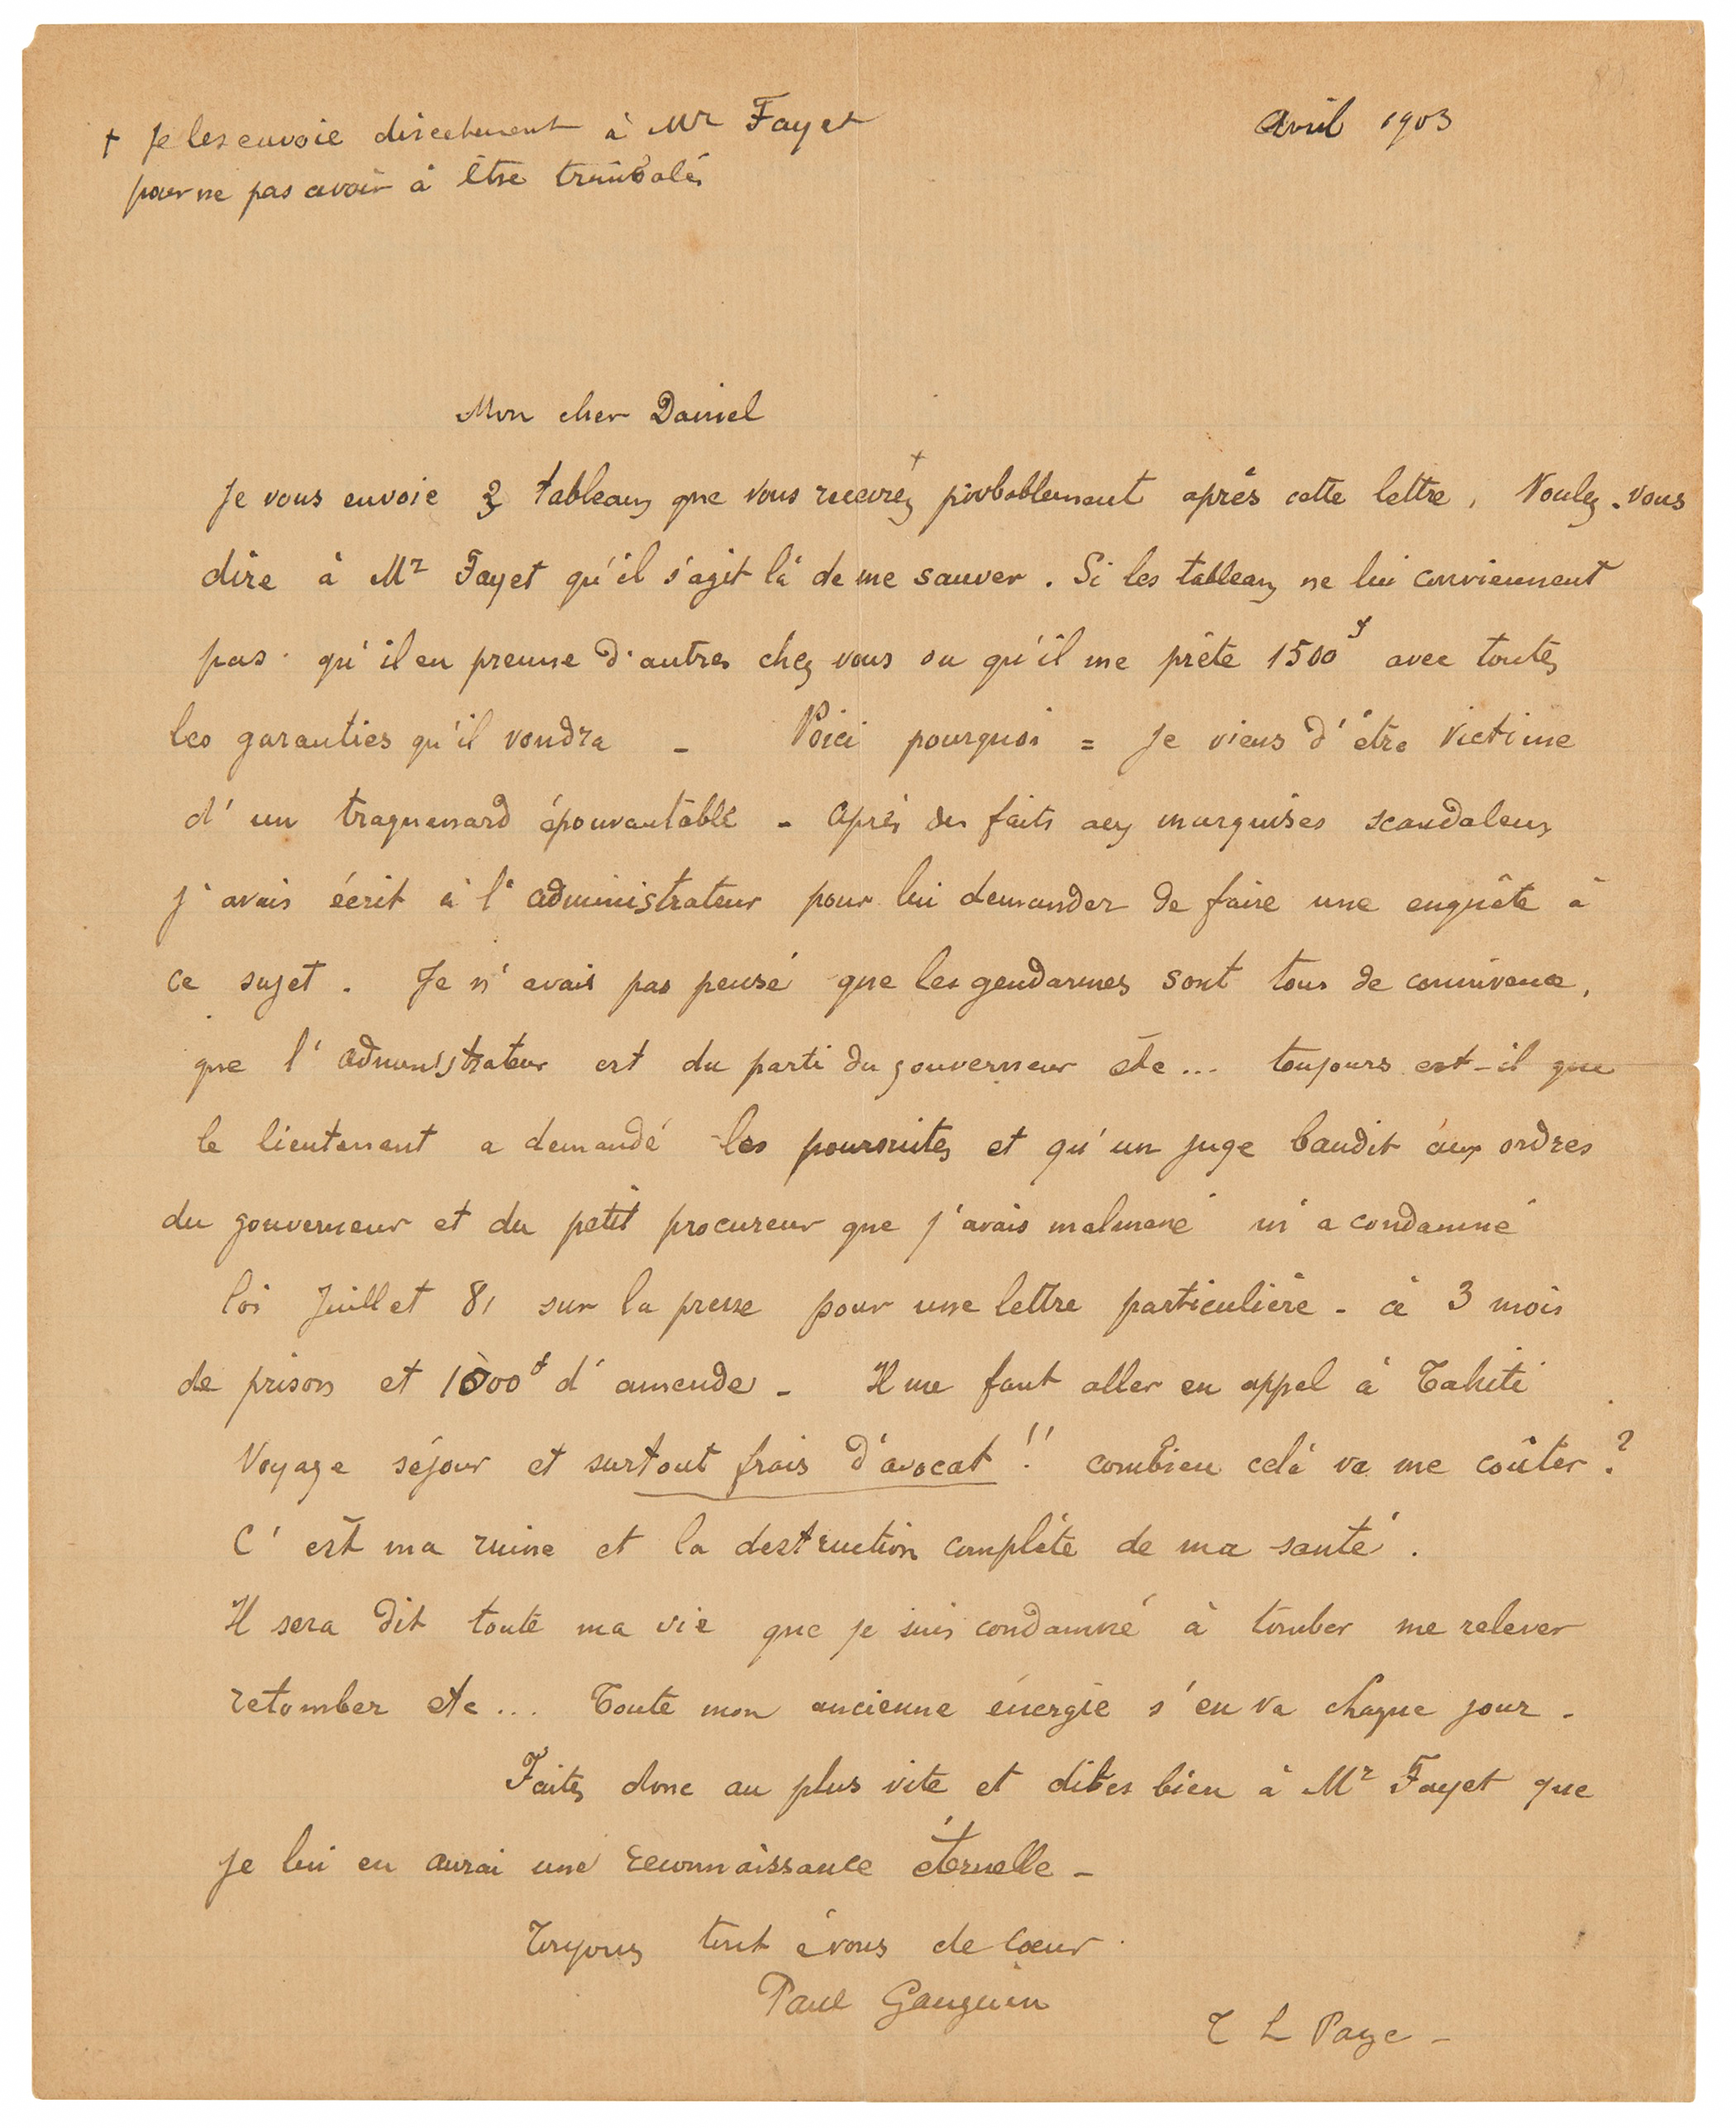 Avril 1903
+ Je les envoie directement à Mr Fayet
pour ne pas avoir à être trimbalés
Mon cher Daniel
Je vous envoie 3 tableaux que vous recevrez + probablement après cette lettre, Voulez-vous
dire à Mr Fayet qu'il s'agit là de me sauver. Si les tableaux ne lui conviennent
pas. qu'il en prenne d'autres chez vous ou qu'il me prête 1500f avec toutes
les garanties qu'il voudra - Voici pourquoi = Je viens d'être victime
d'un traquenard épouvantable - Après des faits aux marquises scandaleux
j'avais écrit à l'administrateur pour lui demander de faire une enquête à
ce sujet. Je n'avais pas pensé que les gendarmes sont tous de connivence,
que l'administrateur est du parti du gouverneur etc... toujours est-il que
le lieutenant a demandé les poursuites et qu'un juge bandit aux ordres
du gouverneur et du petit procureur que j'avais malmené m'a condamné
loi Juillet 81 sur la presse pour une lettre particulière - à 3 mois
de prison et 1000f d'amende - Il me faut aller en appel à Tahiti
Voyage séjour et surtout frais d'avocat !! combien celà va me coûter ?
C'est ma ruine et la destruction complète de ma santé.
Il sera dit toute ma vie que je suis condamné à tomber me relever
retomber etc... Toute mon ancienne énergie s'en va chaque jour -
Faites donc au plus vite et dites bien à Mr Fayet que
je lui en aurai une reconnaissance éternelle -
Toujours tout à vous de coeur.
Paul Gauguin